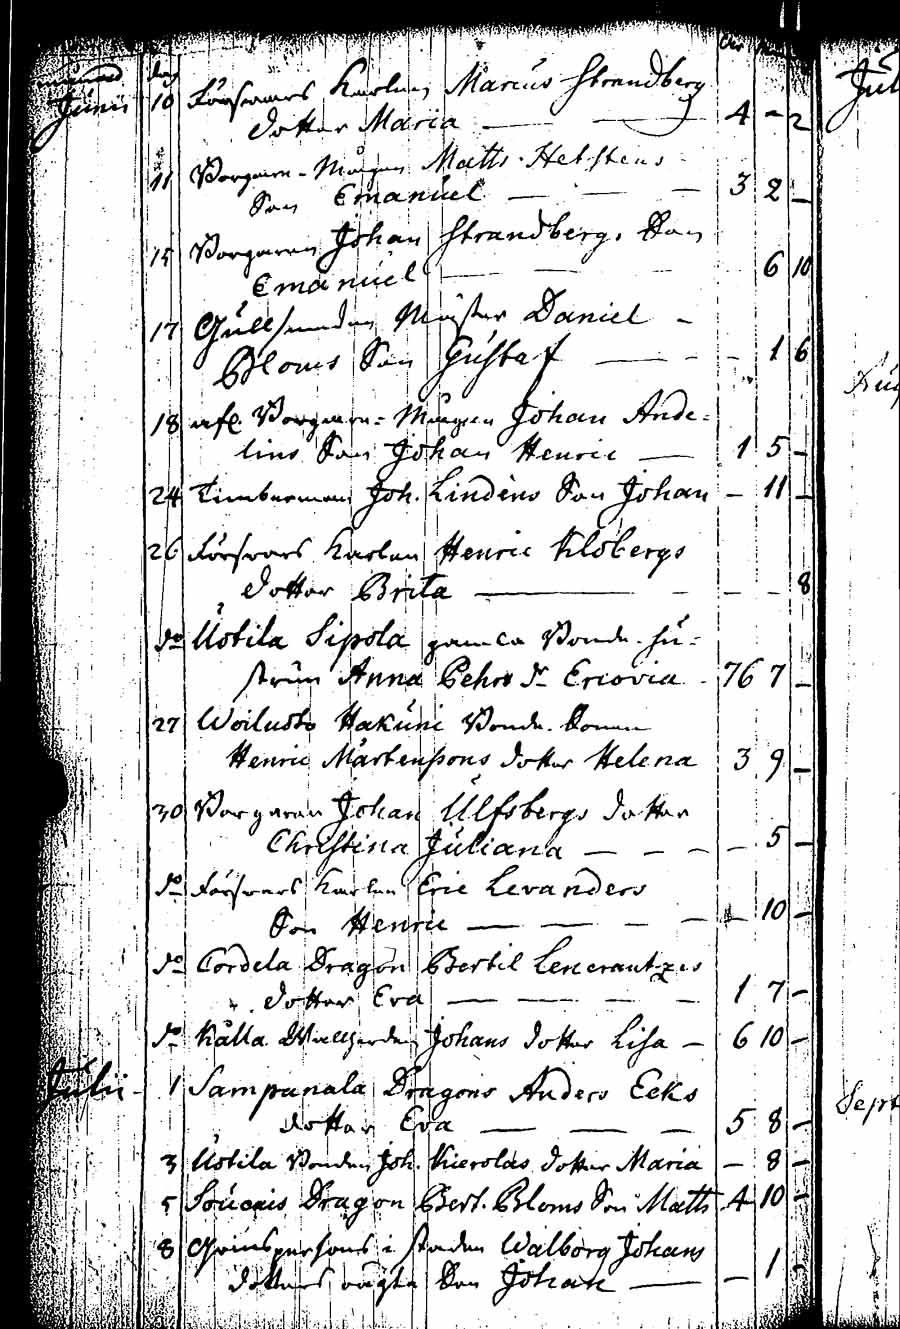 månad dag
Junii 10 Försvars Karlen Marcus Strandberg Jul
dotter Maria — — 4 - 2
11 Borgare-Mågen Matts Helstens
Son Emanuel — — — 3 2 -
15 Borgaren Johan Strandbergs Son
Emanuel — — — 6 10
17 Gullsmeden Mäster Daniel -
Bloms Son Gustaf — - - 1 6
Aug
18 afl. Borgare-Mågen Johan Ande=
lins Son Johan Henric — 1 5 -
24 Timberman Joh. Lindens Son Johan - 11 -
26 Försvars Karlen Henric Klöbergs
dotter Brita — - - - 8
do Uotila Sipola gamla Bonde-hu=
strun Anna Pehrs dr Ericovia - 76 7 -
27 Woiluoto Hakuni Bonde-Sonen
Henric Mårtenssons dotter Helena 3 9 -
30 Borgaren Johan Ulfsbergs dotter
Christina Juliana — - - - 5 -
do Försvars Karlen Eric Levanders
Son Henric — — - - - 10 -
do Cordela Dragon Bertil
dotter Eva — — — - 1 7 -
do Källa Johans dotter Lisa - 6 10 -
Julii - 1 Sampanala Dragons Anders Ecks
Sept
dotter Eva — — — 5 8 -
3 Uotila Bonden Joh. Kierolas dotter Maria - 8 -
5 Soucais Dragon Bert. Bloms Son Matts 4 10 -
8 i staden Walborg Johans
dotters oägta Son Johan — - 1 -